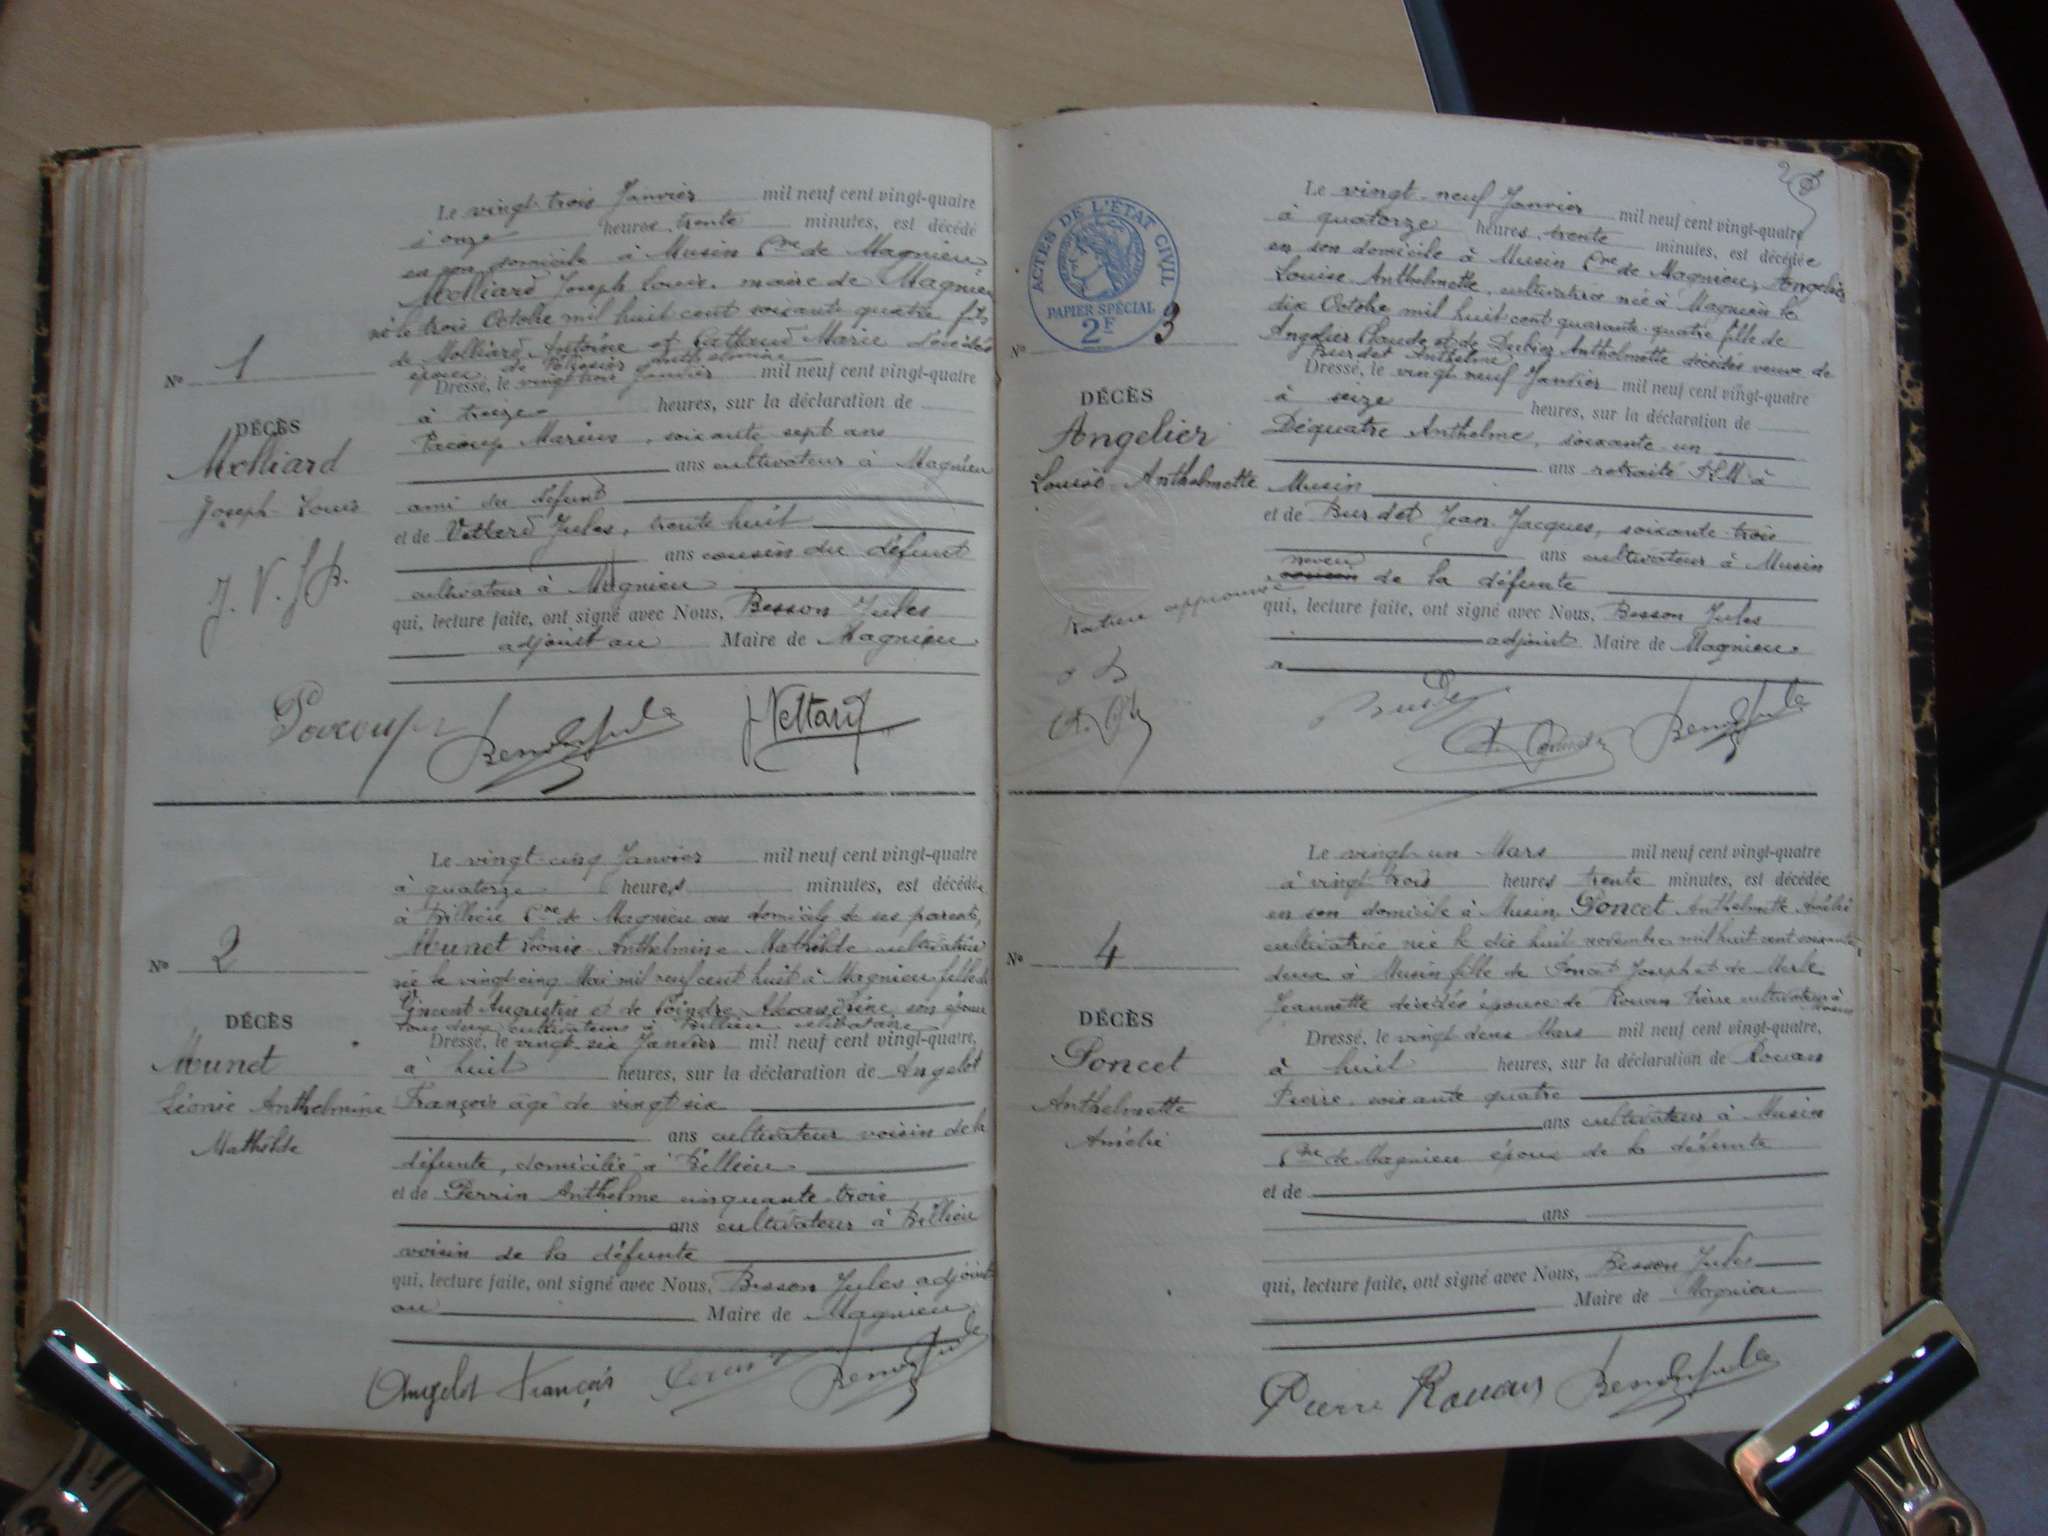 Le vingt-trois Janvier mil neuf cent vingt-quatre
à onze heures trente minutes, est décédé
en son domicile à Musin Cne de Magnieu
Molliard Joseph Louis, maire de Magnieu
né le trois Octobre mil huit cent soixante quatre fils
de Molliard Antoine et Marie décédés
époux de Anthelmine
Dressé, le vingt trois Janvier mil neuf cent vingt-quatre
à treize heures, sur la déclaration de
Marius, soixante sept ans
ans cultivateur à Magnieu
ami du défunt
et de Vettard Jules, trente huit
ans cousin du défunt
cultivateur à Magnieu
qui, lecture faite, ont signé avec Nous, Besson Jules
adjoint au Maire de Magnieu
No 1
DÉCÈS
Molliard
Joseph Louis
J. V.
Vettard
Le vingt-cinq Janvier mil neuf cent vingt-quatre
à quatorze heures minutes, est décédée
à Cne de Magnieu au domicile de ses parents,
Munet Léonie Anthelmine Mathilde cultivatrice
née le vingt cinq Mai mil neuf cent huit à Magnieu fille de
Vincent Augustin et de Poindre Alexandrine son épouse
tous deux cultivateurs à célibataire
Dressé, le vingt-six Janvier mil neuf cent vingt-quatre,
à huit heures, sur la déclaration de Angelot
François âgé de vingt six
ans cultivateur voisin de la
défunte, domicilié à
et de Perrin Anthelme cinquante-trois
ans cultivateur à
voisin de la défunte
qui, lecture faite, ont signé avec Nous, Besson Jules adjoint
au Maire de Magnieu
No 2
DÉCÈS
Munet
Léonie Anthelmine
Mathilde
Angelot François
2
ACTES DE L'ÉTAT CIVIL
PAPIER SPÉCIAL
2F
Le vingt-neuf Janvier mil neuf cent vingt-quatre
à quatorze heures trente minutes, est décédée
en son domicile à Musin Cne de Magnieu, Angelier
Louise Anthelmette, cultivatrice née à Magnieu le
dix Octobre mil huit cent quarante-quatre fille de
Angelier Claude et de Anthelmette décédés veuve de
Burdet Anthelme
Dressé, le vingt neuf Janvier mil neuf cent vingt-quatre
à seize heures, sur la déclaration de
Déquatre Anthelme, soixante-un
ans retraité PLM à
Musin
et de Burdet Jean Jacques, soixante-trois
ans cultivateur à Musin
neveu
cousin de la défunte
qui, lecture faite, ont signé avec Nous, Besson Jules
adjoint Maire de Magnieu
No 3
DÉCÈS
Angelier
Louise Anthelmette
Rature approuvée
Le vingt-un Mars mil neuf cent vingt-quatre
à vingt trois heures trente minutes, est décédée
en son domicile à Musin, Poncet Anthelmette Amélie
cultivatrice née le dix huit novembre mil huit cent soixante
deux à Musin fille de Poncet Joseph et de Merle
Jeannette décédés épouse de Rouan Pierre cultivateur à
Musin
Dressé, le vingt deux Mars mil neuf cent vingt-quatre,
à huit heures, sur la déclaration de Rouan
Pierre, soixante quatre
ans cultivateur à Musin
Cne de Magnieu époux de la défunte
et de
ans
qui, lecture faite, ont signé avec Nous, Besson Jules
Maire de Magnieu
No 4
DÉCÈS
Poncet
Anthelmette
Amélie
Pierre Rouan